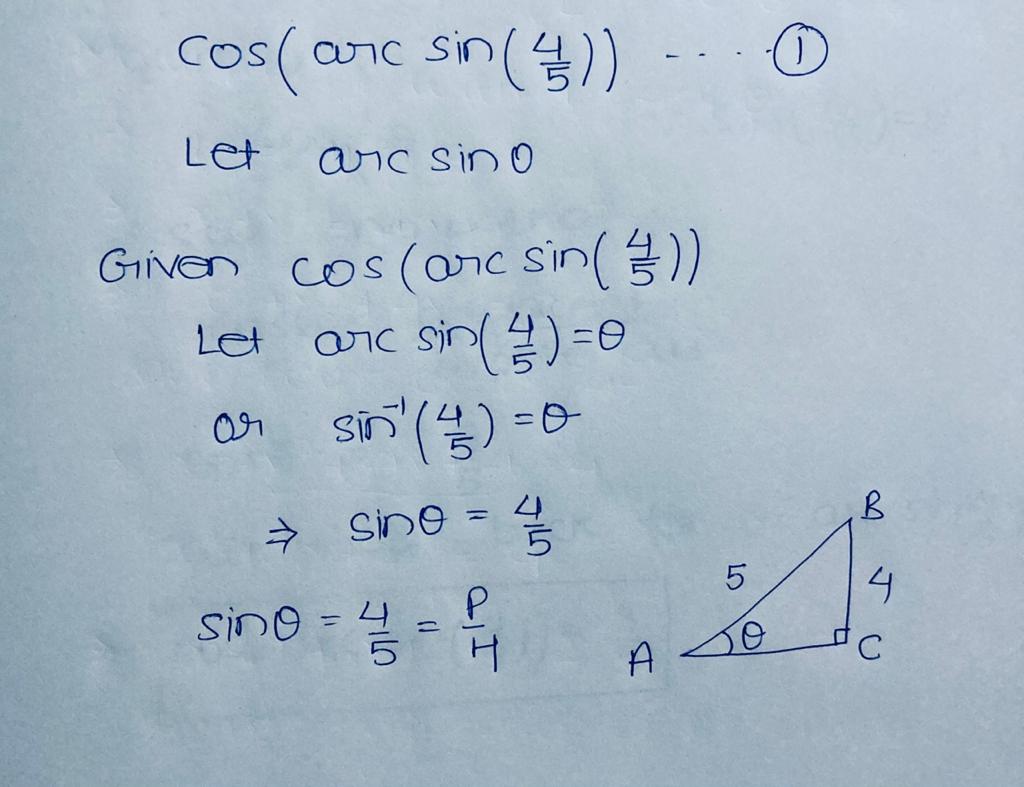 cos(arc sin(4/5)) ---- ①
Let arc sinθ
Given cos(arc sin(4/5))
Let arc sin(4/5)=θ
or sin⁻¹(4/5)=θ
⇒ sinθ = 4/5
sinθ = 4/5 = P/H
B
5
4
θ
A
C